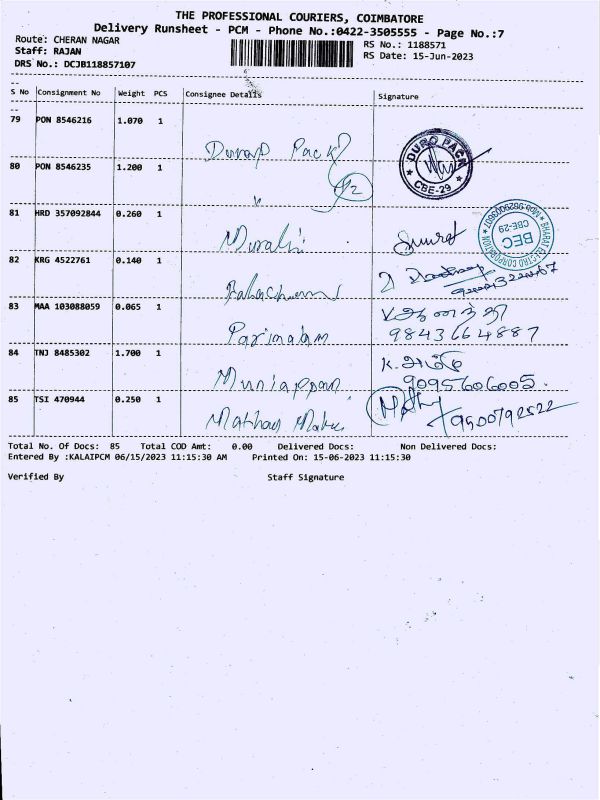 THE PROFESSIONAL COURIERS, COIMBATORE
Delivery Runsheet - PCM - Phone No.:0422-3505555 - Page No.:7
Route: CHERAN NAGAR RS No.: 1188571
Staff: RAJAN RS Date: 15-Jun-2023
DRS No.: DCJB118857107
S No Consignment No Weight PCS Consignee Details Signature
79 PON 8546216 1.070 1
Durop Pack
DURO PACK
CBE-29
80 PON 8546235 1.200 1
81 HRD 357092844 0.260 1
Murali
BEC
CBE-29
82 KRG 4522761 0.140 1
83 MAA 103088059 0.065 1
Parimalam
9843664887
84 TNJ 8485302 1.700 1
Muniappan
9095606005.
85 TSI 470944 0.250 1
Total No. Of Docs: 85 Total COD Amt: 0.00 Delivered Docs: Non Delivered Docs:
Entered By :KALAIPCM 06/15/2023 11:15:30 AM Printed On: 15-06-2023 11:15:30
Verified By Staff Signature